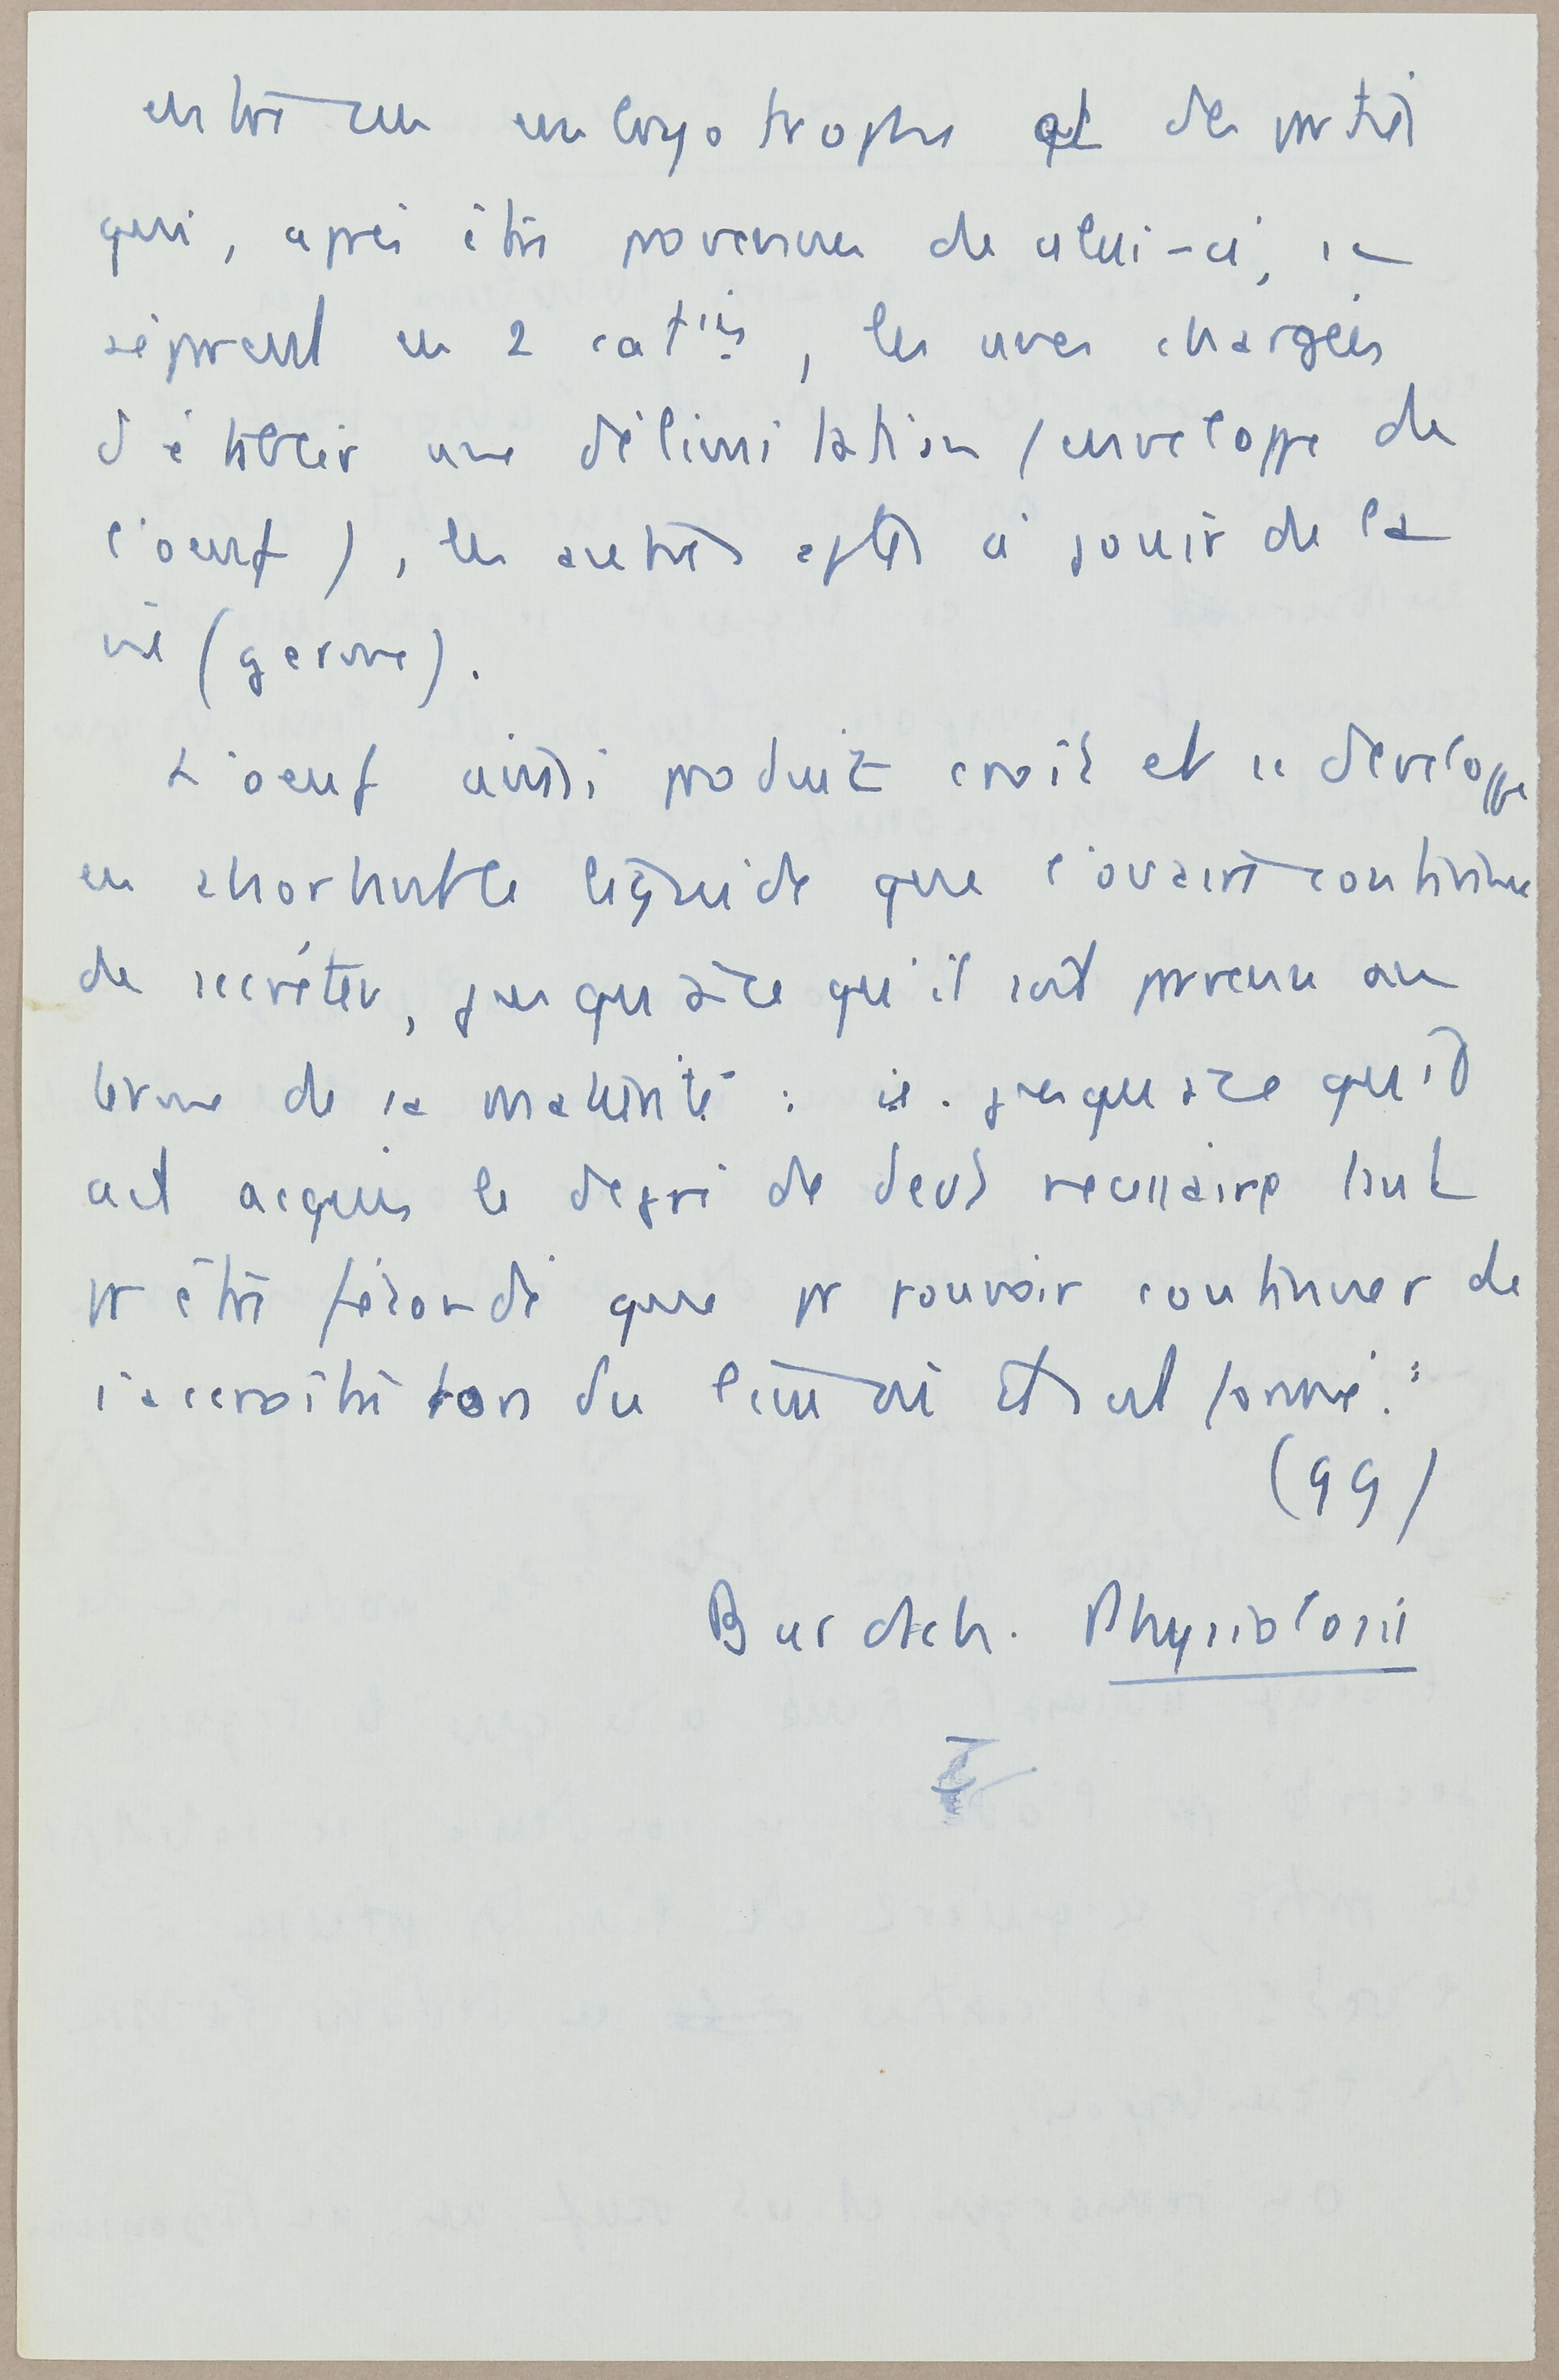 entre un embryotrophe et des parties
qui, après être provenues de celui-ci, se
séparent en 2 caties, les unes chargées
d'établir une délimitation (enveloppe de
l'oeuf), les autres aptes à jouir de la
vie (germe).
L'oeuf ainsi produit croît et se développe
en absorbant le liquide que l'ovaire continue
de secréter, jusqu'à ce qu'il soit parvenu au
terme de sa maturité : ie. jusqu'à ce qu'il
ait acquis le degré de devt nécessaire tant
pr être fécondé que pr pouvoir continuer de
s'accroître hors du lieu où il s'est formé."
(99)
Burdach. Physiologie